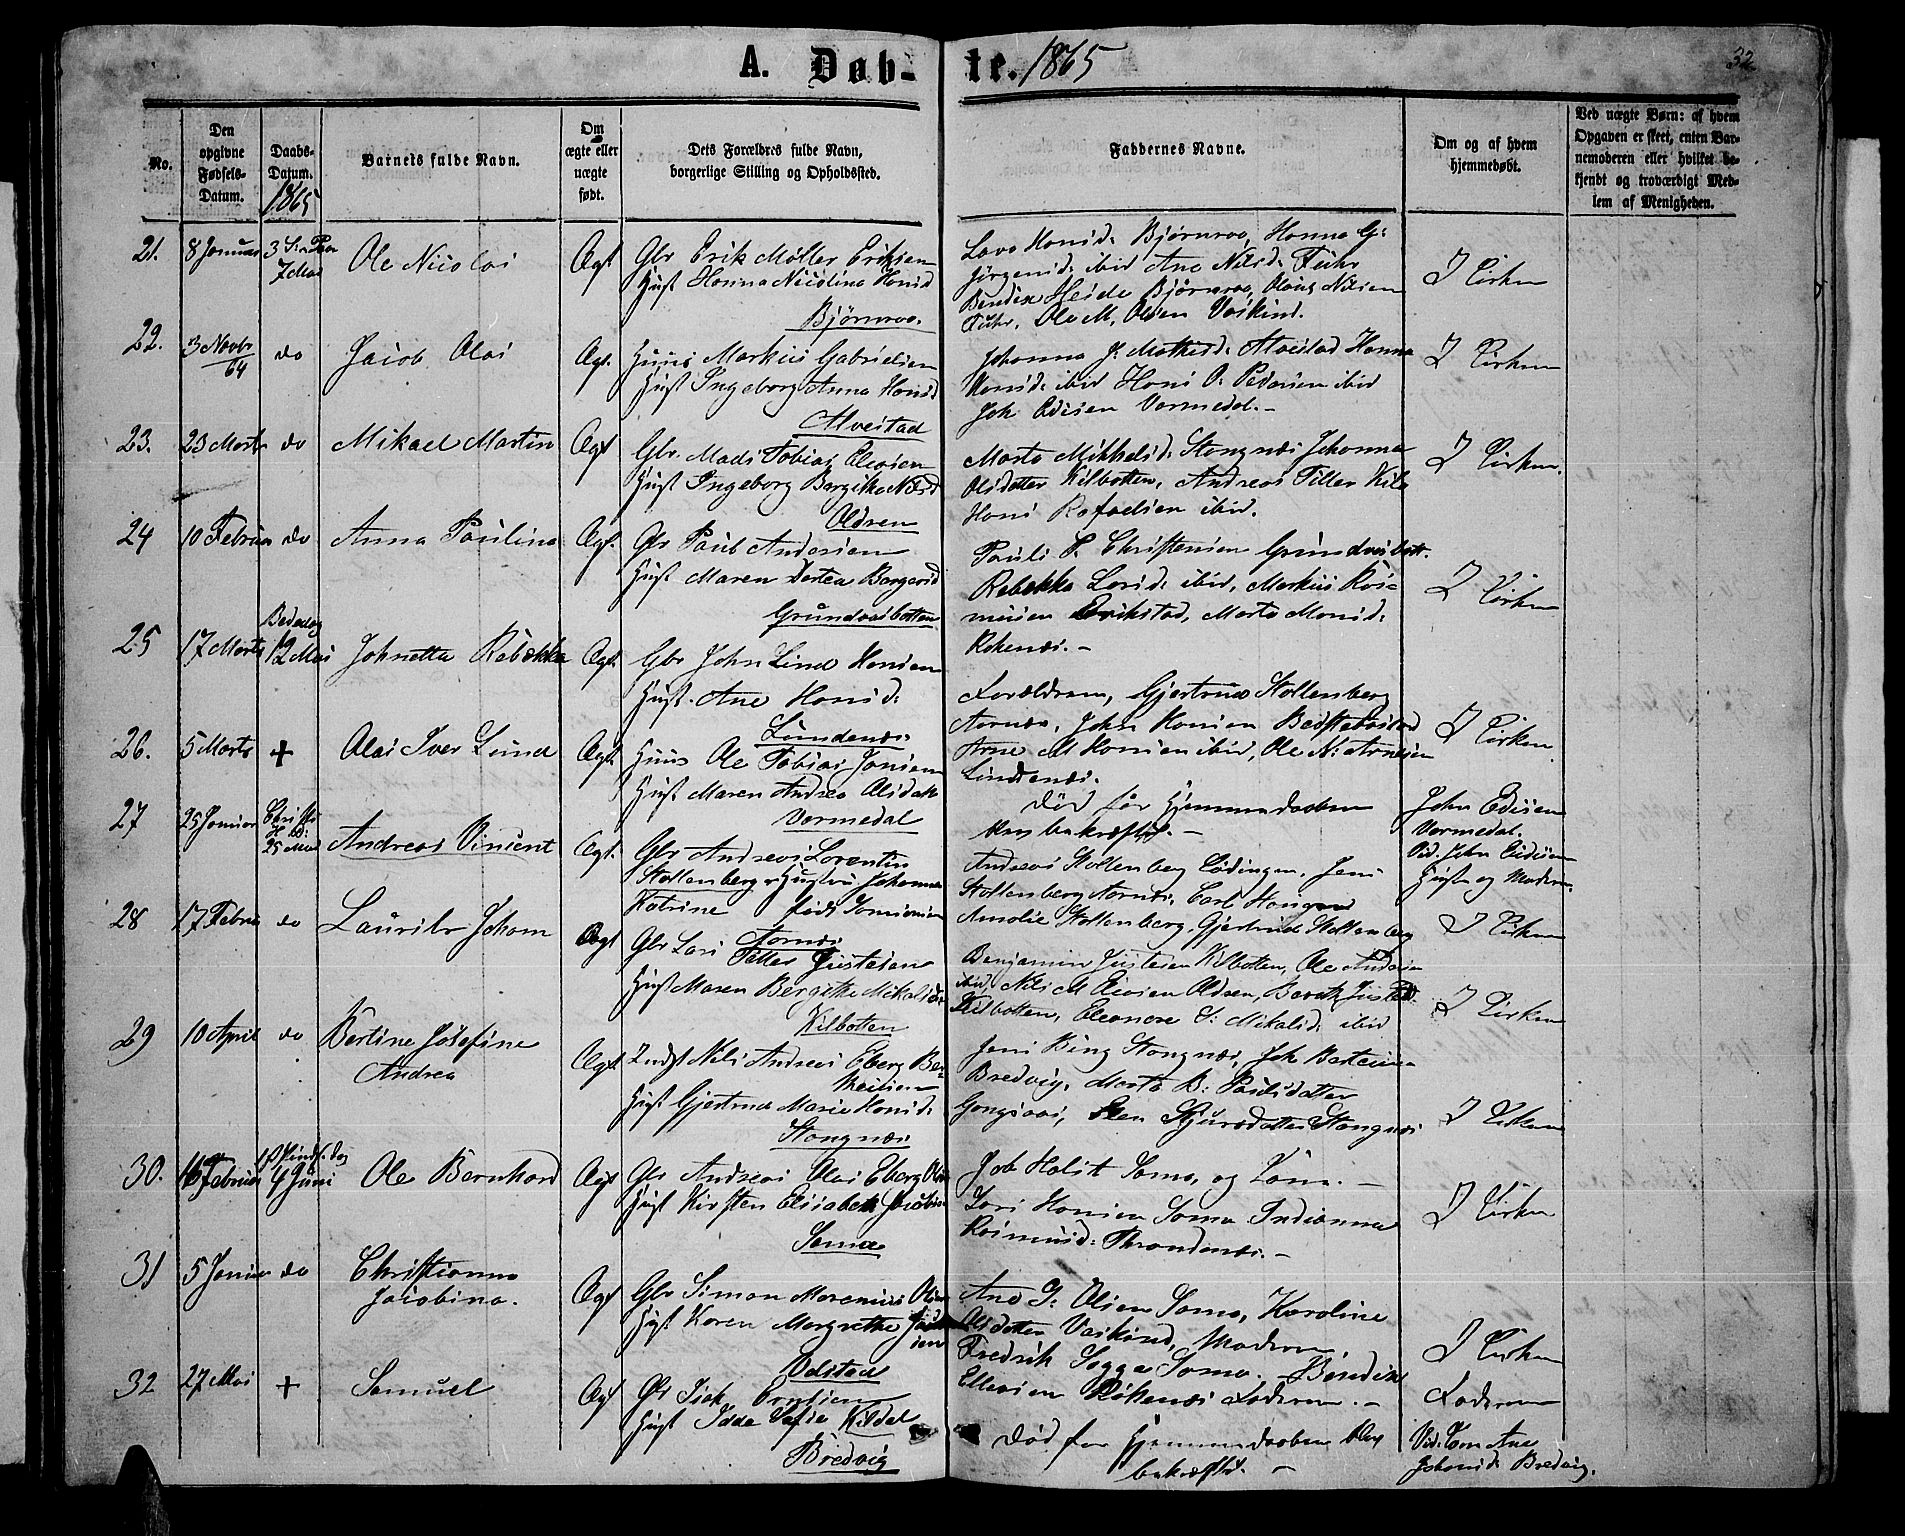 A. Døb- te. 1865
32
No.
Den opgivne Fødsels-Datum.
Daabs-Datum. 1865
Barnets fulde Navn.
Om ægte eller uægte født.
Dets Forældres fulde Navn, borgerlige Stilling og Opholdssted.
Faddernes Navne.
Om og af hvem hjemmedøbt.
Ved uægte Børn: af hvem Opgaven er skeet, enten Barnemoderen eller hvilket bekjendt og troværdigt Medlem af Menigheden.
21. 8 Januar 3 S: e Paa 7 Mai Ole Nicolai Ægt Gbr Erik Møller Eriksen
Hust Hanna Nicolina Hansd
Bjørnraa.
Lava Hansd: Bjørnraa, Hanna G:
Jørgensd: ibid Ane Nilsd: Fuhr
Bendix Heide Bjørnraa, Nilsen
Fuhr, Ole M. Olsen Vaskind.
I Kirken
22. 3 Novbr 64 do Jacob Olai Ægt. Huus Markus Gabrielsen
Hust Ingeborg Anna Hansd
Alvestad
Johanna J. Mathisd: Alvestad Hanna
Hansd: ibid Hans O. Pedersen ibid
Joh Edisen Vormedal.-
I Kirken
23. 23 Marts do Mikael Martin Ægt Gbr. Mads Tobias Eliasen
Hust Ingeborg Bergitha Nilsd
Aldren
Marta Mikkelsd: Stangnæs Johanna
Olsdatter Kilbotten, Andreas Tiller Kilb
Hans Rafaelsen ibid.
I Kirken.
24 10 Februar do Anna Paulina Ægt. Gbr Paul Andersen
Hust Maren Dortea Bergersd
Grundvasbotten
Pauli P. Christensen Grundvasbott.
Rebekka Larsd: ibid, Markus Ras-
musen Erikstad, Marta Monsd:
Røkenæs.-
I Kirken
25 17 Marts Bededag 12 Mai Johnetta Rebekka Ægt. Gbr John Lind Hansen
Hust. Ane Hansd:
Lundenæs.
Forældrene, Gjertrud Stoltenberg
Aarnæs, John Hansen
Arne M Hansen ibid, Ole N: Arnesen
Lundenæs.
I Kirken
26. 5 Marts + Olai Iver Lund Ægt. Huus Ole Tobias Jansen
Hust Maren Andrea Olsdatt
Vormedal
Død før Hjemmedaaben
blev bekræftet.-
John Edisen
Vormedal.
Vid. John Edisen
Hust og Moderen.
27 25 Januar Christi H 25 Mai Andreas Vincent Ægt. Gbr Andreas Lorentin
Stoltenberg & Hustru Johanna
Katrine født
Aarnæs
Andreas Stoltenberg Lødingen, Jens
Stoltenberg Aarnæs, Carl Hansen
Amalie Stoltenberg, Gjertrude Stoltenberg
I Kirken
28 17 Februar do Laurits Johan Ægt Gbr Lars Petter Justesen
Hust Maren Bergitte Mikalsd:
Kilbotten
Benjamin Justesen Kilbotten, Ole Andersen
ibid, Nils M Eliasen Aldren, Berith Justesd:
Kilbotten, Eleonore S: Mikalsd: ibid
I Kirken
29 10 April do Bertine Josefine
Andrea
Ægt Indst Nils Andreas Eberg Be-
Hust Gjertrud Marie Hansd:
Stangnæs
Jens Bing Stangnæs, Joh
Bredvig, Marta B: Paulsdatter
Gangsaas, Elen Sjursdatter Stangnæs
I Kirken
30. 16 Februar 1ste Pindsedag 4 Juni Ole Bernhard Ægt Gbr Andreas Olai Eberg
Hust Kirsten Elisabeth Jacobsen
Sama
Job Holst Sama, og Kone.-
Lars Hansen Sama Indianna
Rasmusd: Throndenæs.-
I Kirken
31 5 Januar do Christianna
Jacobina.
Ægt Gbr Simon Marenius Olsen
Hust Karen Margrethe
Aalstad
Ane J: Olsen Sama, Karoline
Olsdatter Vaskind, Moderen,
Fredrik Sogga Sama. Bendix
Ellevsen Røkenæs Faderen.-
I Kirken
32 27 Mai + Samuel Ægt Gbr Isak
Hust Idde Sofie Kildal
Bredvig
Død før Hjemmedaaben blev
bekræftet.-
Faderen
Vid: Ane
Johansd: Bredvig.